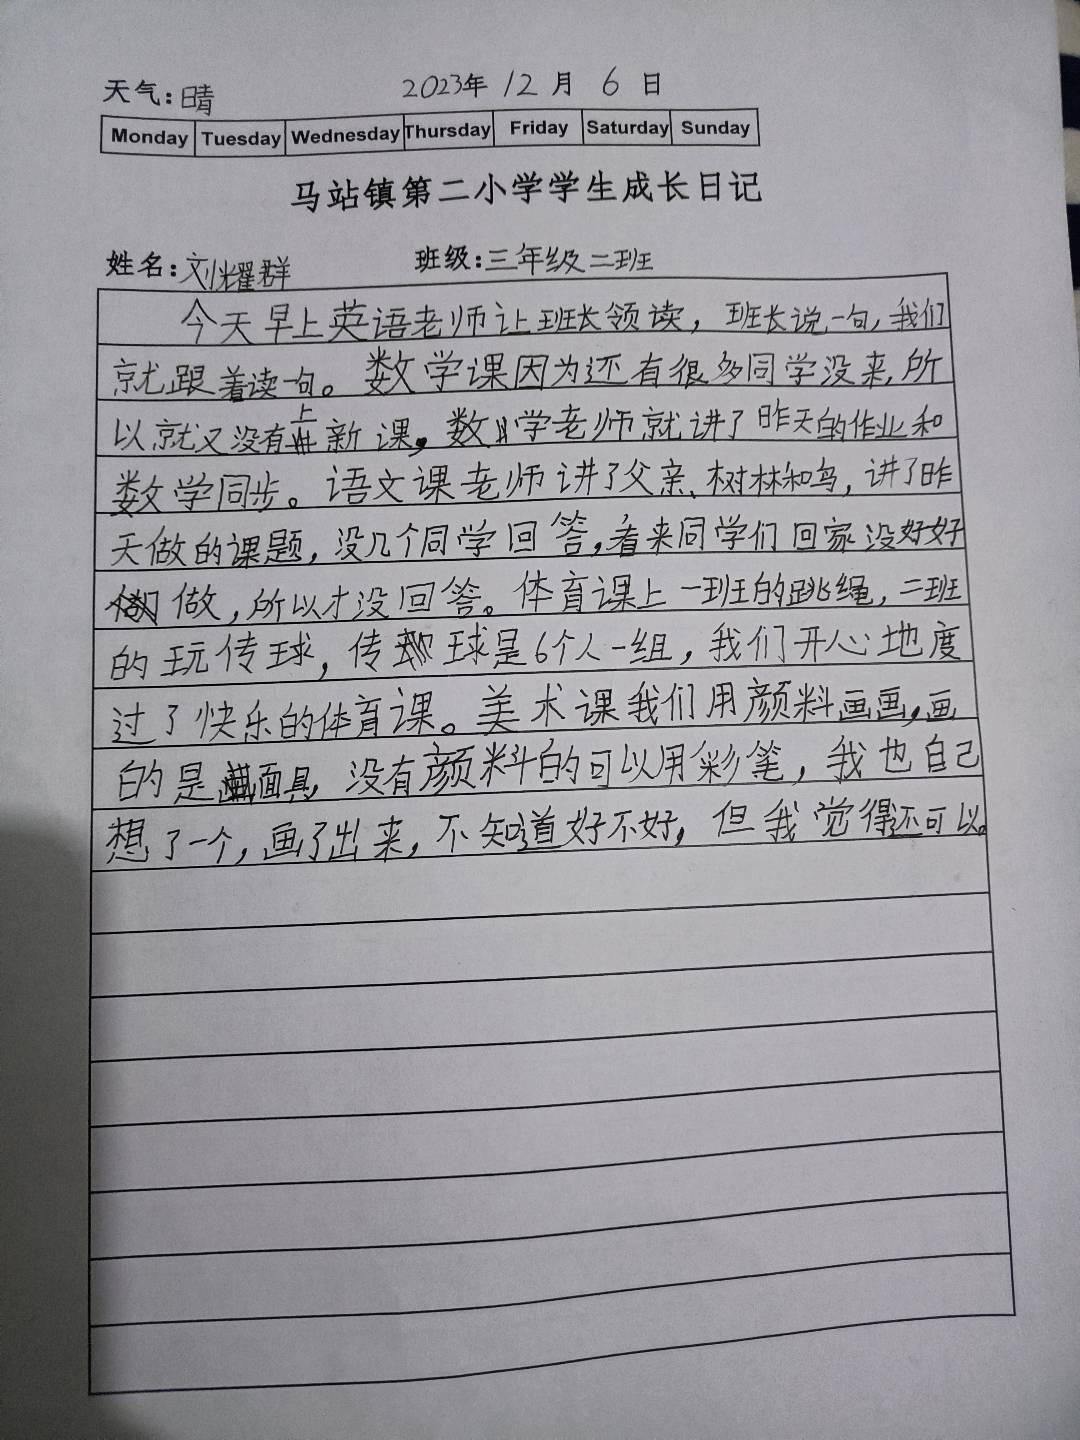 天气：晴 2023年 12 月 6 日
Monday Tuesday Wednesday Thursday Friday Saturday Sunday
马站镇第二小学学生成长日记
姓名：刘耀群 班级：三年级二班
今天早上英语老师让班长领读，班长说一句，我们
就跟着读一句。数学课因为还有很多同学没来，所
以就又没有上新课，数学老师就讲了昨天的作业和
数学同步。语文课老师讲了父亲、树林和鸟，讲了昨
天做的课题，没几个同学回答，看来同学们回家没好好
做，所以才没回答。体育课上一班的跳绳，二班
的玩传球，传球是6个人一组，我们开心地度
过了快乐的体育课。美术课我们用颜料画画，画
的是面具，没有颜料的可以用彩笔，我也自己
想了一个，画了出来，不知道好不好，但我觉得还可以。